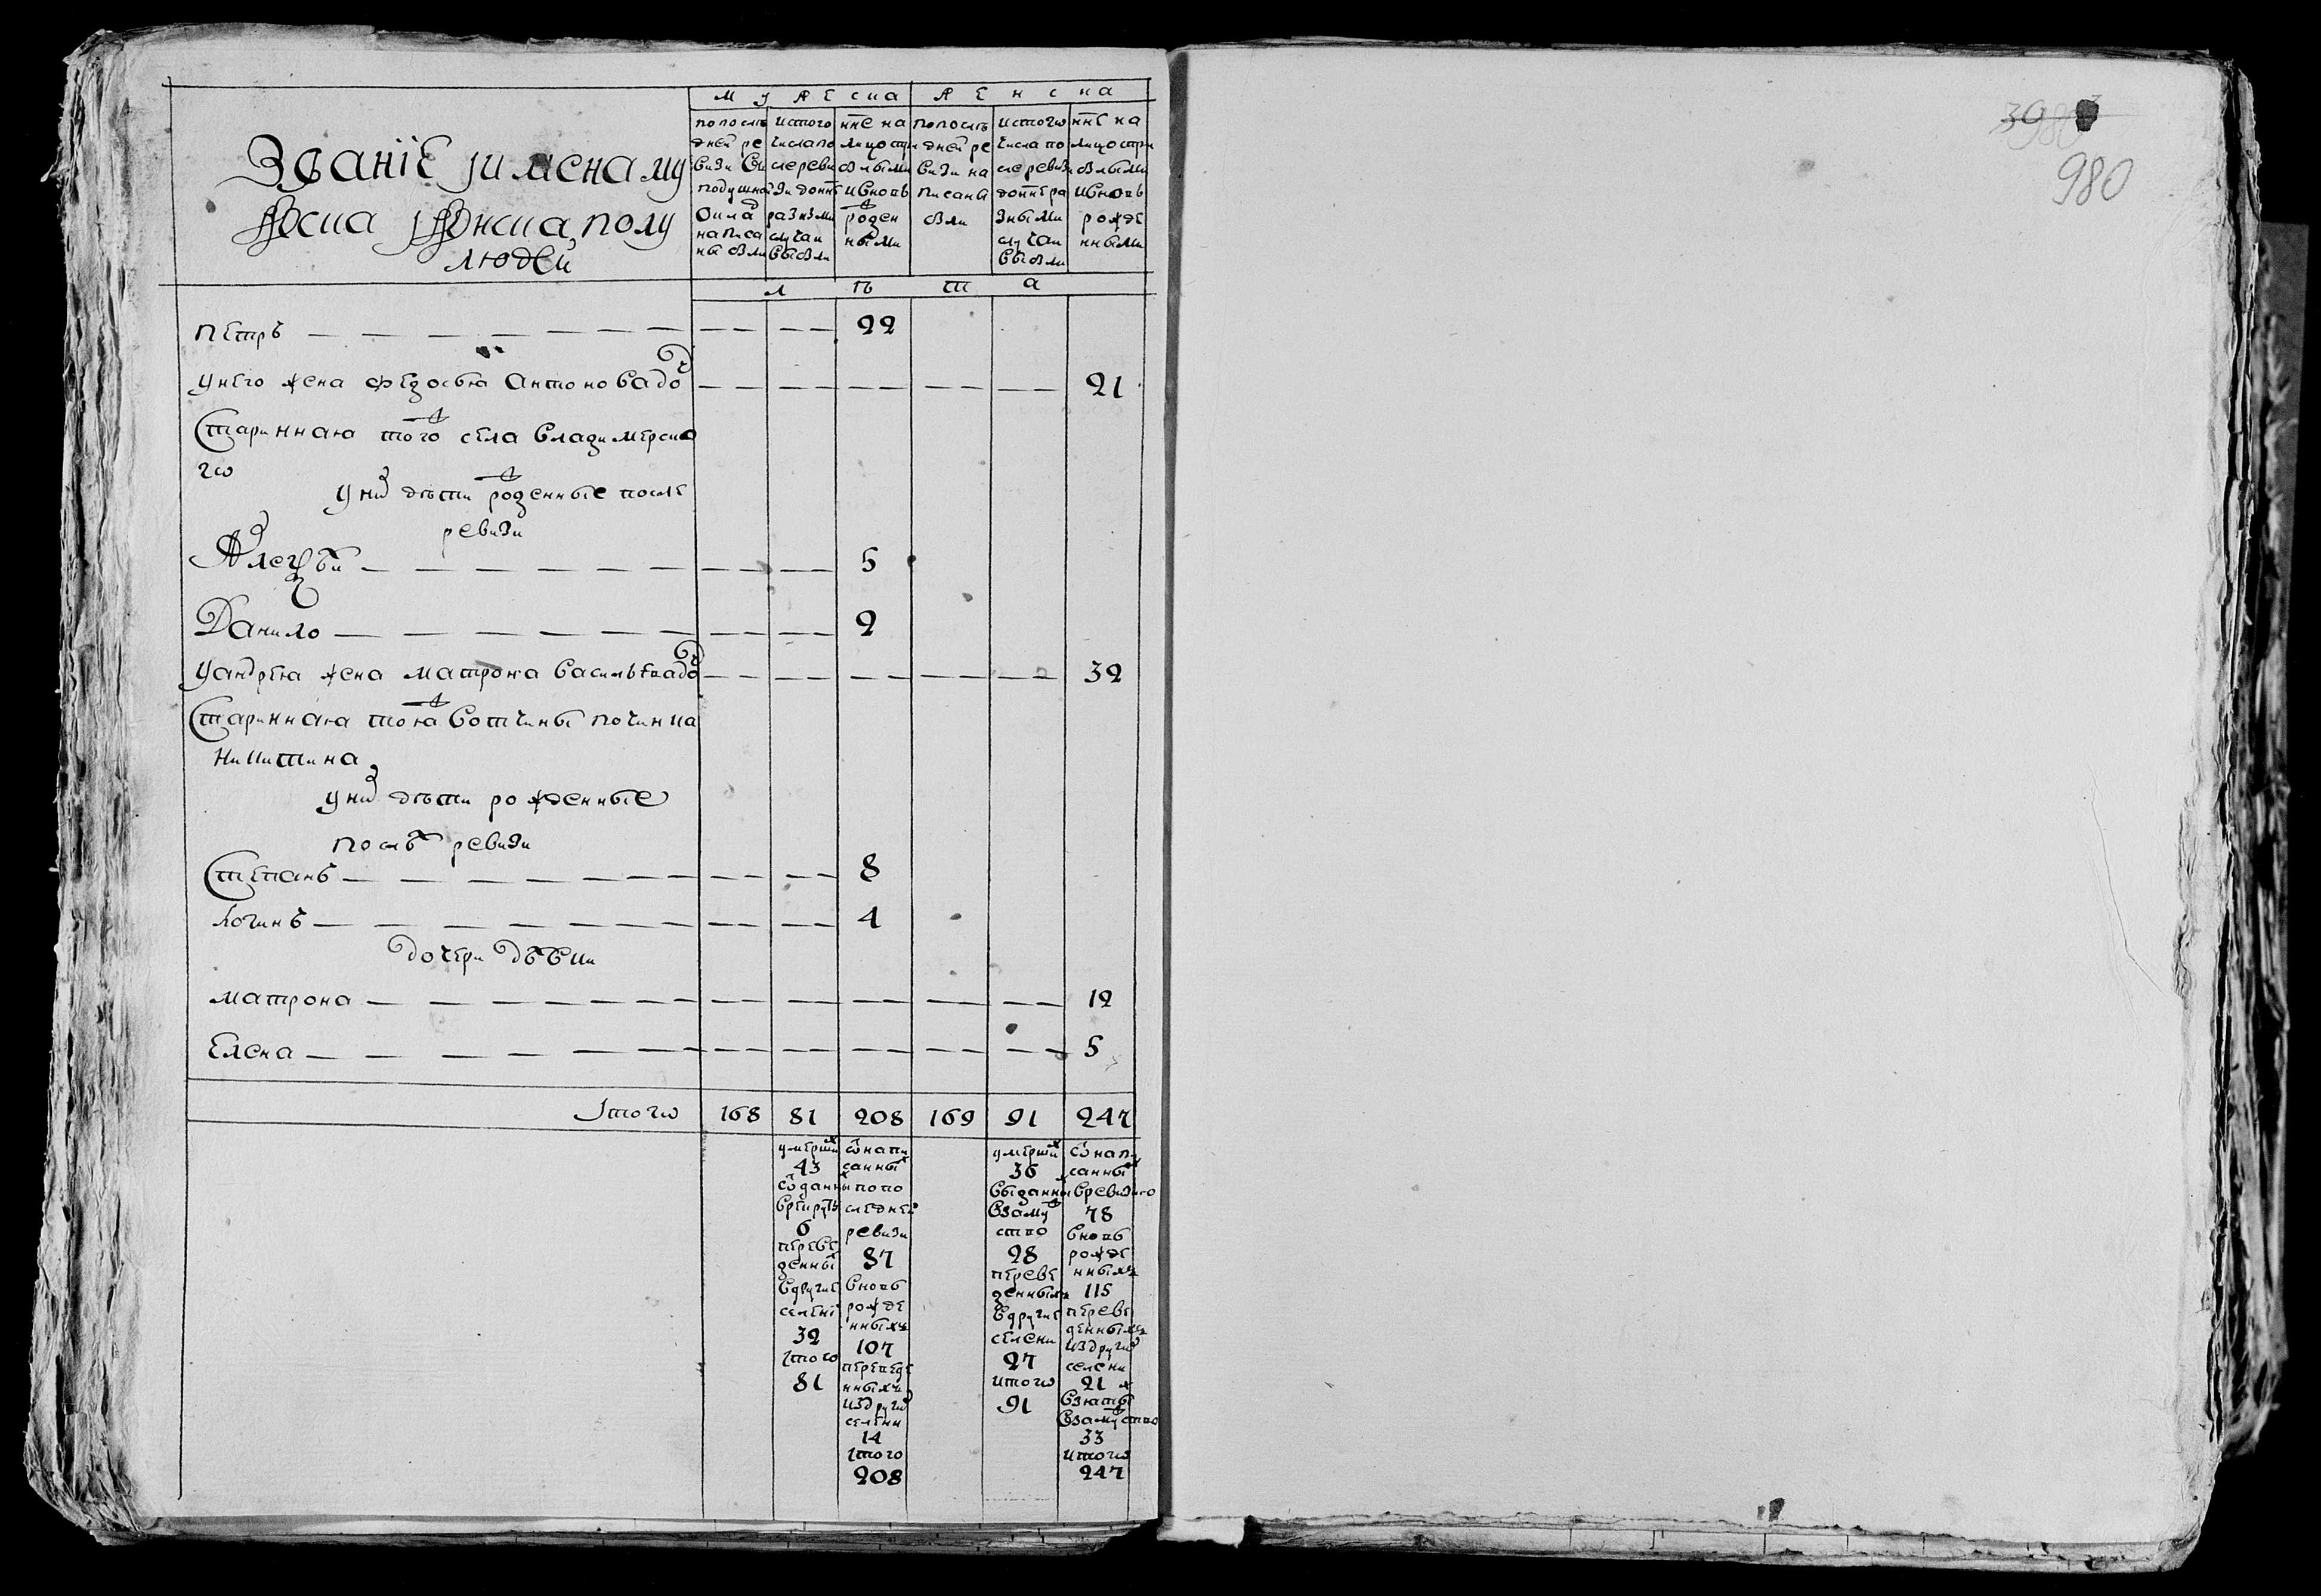 мужеска женска
Званїе и женаму
жеска и женска полу
людеи
по после
дней ре
визи в
подушно
окладъ
написа
ны были
ис того
числа по
сле реви
зи до нне
разными
случаи
выбыли
нне на
лицо при
былыми
и вновь
рожден
ными
по после
дней ре
визи на
писаны
были
ис того
числа по
сле реви
до нне ра
зными
случаи
выбыли
нне на
лицо при
былыми
и вновь
рожде
нными
лѣта
Петръ 22
У него жена Федосья Антонова до 21
Стариннаю того ж села Владимерско
го
У них дѣти рожденные после
ревизи
Алексѣй 5
Данило 2
У Андрея жена Матрона Васильева до 32
Стариннаю тоя ж вотчины починка
Никитина
У них дѣти рожденные
послѣ ревизи
Степанъ 8
Логинъ 4
дочери дѣвки
Матрона 12
Елена 5
Итого 168 81 208 169 91 247
умерших
43
отданных
в рекруты
6
переве
денных
в другие
селени
32
Итого
81
с написанных
по по
следней
ревизи
87
вновь
рожде
нныхъ
107
переведе
нныхъ
из других
селени
14
Итого
208
умерших
36
выданны
в замуж
ство
28
переве
денныхъ
в другие
селени
27
Итого
91
с нап
санных
в ревизию
78
вновь
рожде
нныхъ
115
переве
денныхъ
из других
селени
21
взятых
в замужство
33
Итого
247
980